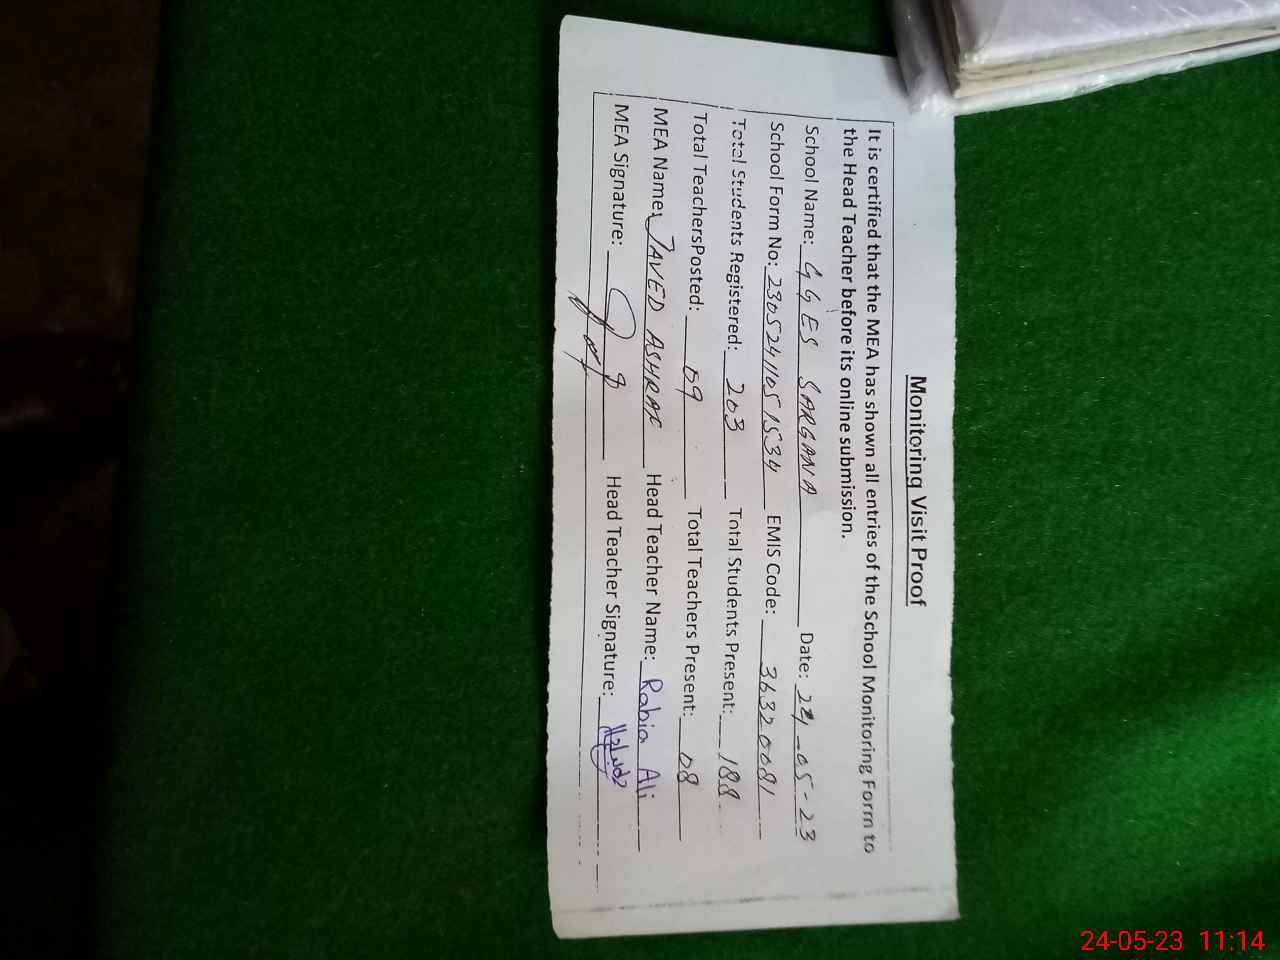 Monitoring Visit Proof
It is certified that the MEA has shown all entries of the School Monitoring Form to
the Head Teacher before its online submission.
School Name: GGES SARGANA Date: 24-05-23
School Form No: 23052411051534 EMIS Code: 36320081
Total Students Registered: 203 Total Students Present: 188
Total TeachersPosted: 09 Total Teachers Present: 08
MEA Name: JAVED ASHRAF Head Teacher Name: Rabia Ali
MEA Signature: Head Teacher Signature:
24-05-23 11:14